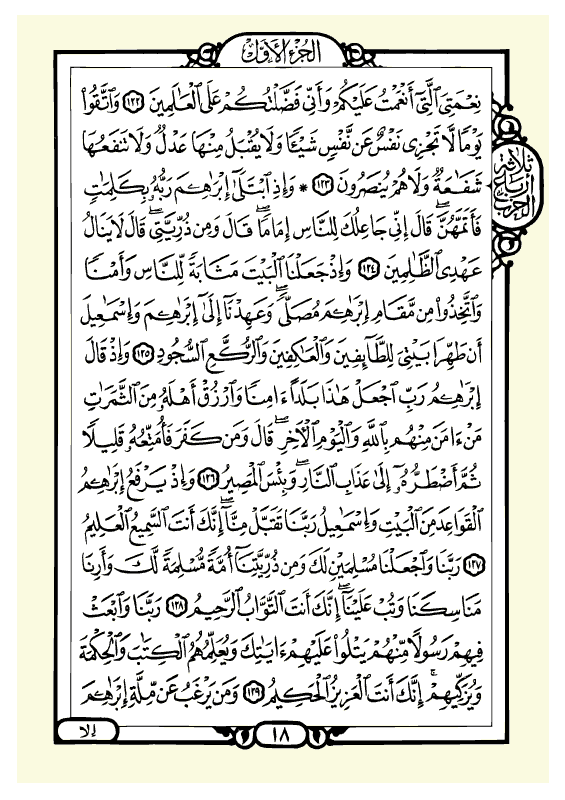 الجُزءُ الأَوَّل
نِعْمَتِىَ ٱلَّتِىٓ أَنْعَمْتُ عَلَيْكُمْ وَأَنِّى فَضَّلْتُكُمْ عَلَى ٱلْعَـٰلَمِينَ ١٢٢ وَٱتَّقُوا۟
يَوْمًا لَّا تَجْزِى نَفْسٌ عَن نَّفْسٍ شَيْـًٔا وَلَا يُقْبَلُ مِنْهَا عَدْلٌ وَلَا تَنفَعُهَا
شَفَـٰعَةٌ وَلَا هُمْ يُنصَرُونَ ١٢٣ * وَإِذِ ٱبْتَلَىٰٓ إِبْرَٰهِـۧمَ رَبُّهُۥ بِكَلِمَـٰتٍ
فَأَتَمَّهُنَّ ۖ قَالَ إِنِّى جَاعِلُكَ لِلنَّاسِ إِمَامًا ۖ قَالَ وَمِن ذُرِّيَّتِى ۖ قَالَ لَا يَنَالُ
عَهْدِى ٱلظَّـٰلِمِينَ ١٢٤ وَإِذْ جَعَلْنَا ٱلْبَيْتَ مَثَابَةً لِّلنَّاسِ وَأَمْنًا
وَٱتَّخِذُوا۟ مِن مَّقَامِ إِبْرَٰهِـۧمَ مُصَلًّى ۖ وَعَهِدْنَآ إِلَىٰٓ إِبْرَٰهِـۧمَ وَإِسْمَـٰعِيلَ
أَن طَهِّرَا بَيْتِىَ لِلطَّآئِفِينَ وَٱلْعَـٰكِفِينَ وَٱلرُّكَّعِ ٱلسُّجُودِ ١٢٥ وَإِذْ قَالَ
إِبْرَٰهِـۧمُ رَبِّ ٱجْعَلْ هَـٰذَا بَلَدًا ءَامِنًا وَٱرْزُقْ أَهْلَهُۥ مِنَ ٱلثَّمَرَٰتِ
مَنْ ءَامَنَ مِنْهُم بِٱللَّهِ وَٱلْيَوْمِ ٱلْـَٔاخِرِ ۖ قَالَ وَمَن كَفَرَ فَأُمَتِّعُهُۥ قَلِيلًا
ثُمَّ أَضْطَرُّهُۥٓ إِلَىٰ عَذَابِ ٱلنَّارِ ۖ وَبِئْسَ ٱلْمَصِيرُ ١٢٦ وَإِذْ يَرْفَعُ إِبْرَٰهِـۧمُ
ٱلْقَوَاعِدَ مِنَ ٱلْبَيْتِ وَإِسْمَـٰعِيلُ رَبَّنَا تَقَبَّلْ مِنَّآ ۖ إِنَّكَ أَنتَ ٱلسَّمِيعُ ٱلْعَلِيمُ
١٢٧ رَبَّنَا وَٱجْعَلْنَا مُسْلِمَيْنِ لَكَ وَمِن ذُرِّيَّتِنَآ أُمَّةً مُّسْلِمَةً لَّكَ وَأَرِنَا
مَنَاسِكَنَا وَتُبْ عَلَيْنَآ ۖ إِنَّكَ أَنتَ ٱلتَّوَّابُ ٱلرَّحِيمُ ١٢٨ رَبَّنَا وَٱبْعَثْ
فِيهِمْ رَسُولًا مِّنْهُمْ يَتْلُوا۟ عَلَيْهِمْ ءَايَـٰتِكَ وَيُعَلِّمُهُمُ ٱلْكِتَـٰبَ وَٱلْحِكْمَةَ
وَيُزَكِّيهِمْ ۚ إِنَّكَ أَنتَ ٱلْعَزِيزُ ٱلْحَكِيمُ ١٢٩ وَمَن يَرْغَبُ عَن مِّلَّةِ إِبْرَٰهِـۧمَ
ثلاثة
أرباع
الحزب
١٨
إلا